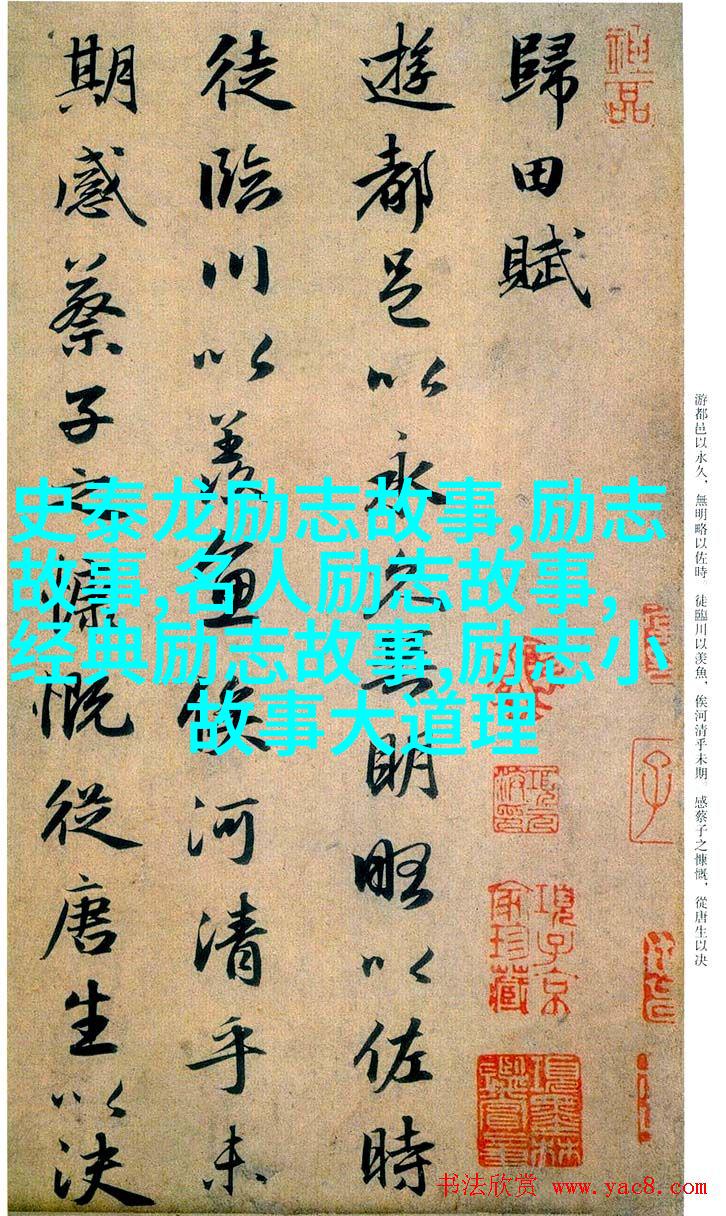 歸田賦
遊都邑以永久無明略以佐時
徒臨川以羨魚俟河清乎未
期感蔡子之慷慨從唐生以決
史泰龙励志故事,励志
故事,名人励志故事,
经典励志故事,励志小
故事大道理
游都邑以永久，無明略以佐時。徒臨川以羨魚，俟河清乎未期。感蔡子之慷慨，從唐生以决
項子京
家珍藏
项墨林
鑑賞章
子
书法欣赏 www.yac8.com